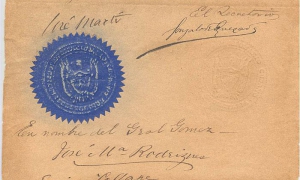 José Martí
El Secretario
Gonzalo de Quesada
En nombre del Gral Gomez—
José Ma Rodriguez